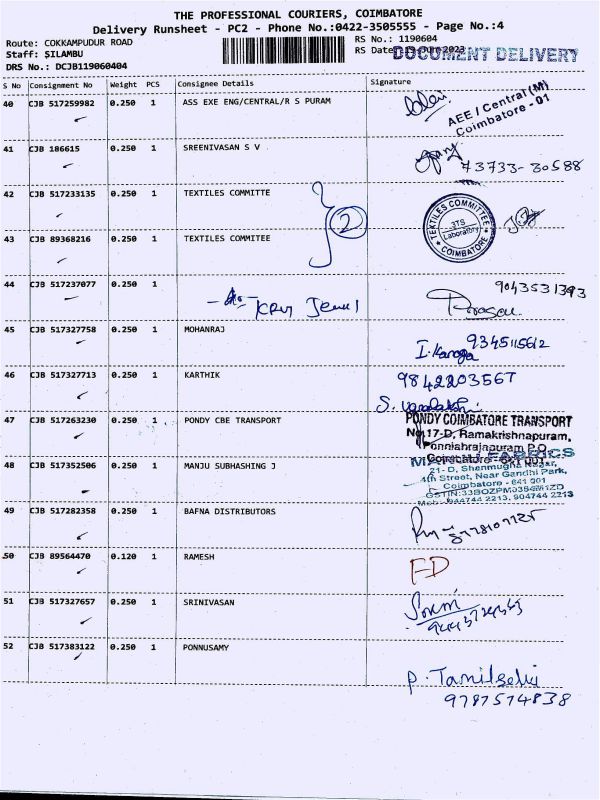 THE PROFESSIONAL COURIERS, COIMBATORE
Delivery Runsheet - PC2 - Phone No.:0422-3505555 - Page No.:4
Route: COKKAMPUDUR ROAD
RS No.: 1190604
Staff: SILAMBU
RS Date
DOCUMENT DELIVERY
DRS No.: DCJB119060404
S No Consignment No Weight PCS Consignee Details Signature
40 CJB 517259982 0.250 1 ASS EXE ENG/CENTRAL/R S PURAM
AEE / Central (M)
Coimbatore - 01
41 CJB 186615 0.250 1 SREENIVASAN S V
73733-30588
42 CJB 517233135 0.250 1 TEXTILES COMMITTE
2
TEXTILES COMMITTEE
Laboratory
COIMBATORE
43 CJB 89368216 0.250 1 TEXTILES COMMITEE
44 CJB 517237077 0.250 1
9043531393
45 CJB 517327758 0.250 1 MOHANRAJ
9345115612
46 CJB 517327713 0.250 1 KARTHIK
9842203567
47 CJB 517263230 0.250 1 PONDY CBE TRANSPORT
PONDY COIMBATORE TRANSPORT
No.17-D, Ramakrishnapuram,
48 CJB 517352506 0.250 1 MANJU SUBHASHING J
21- D, Shenmugha Nagar,
4th Street, Near Gandhi Park,
Coimbatore - 641 001
49 CJB 517282358 0.250 1 BAFNA DISTRIBUTORS
50 CJB 89564470 0.120 1 RAMESH
FD
51 CJB 517327657 0.250 1 SRINIVASAN
52 CJB 517383122 0.250 1 PONNUSAMY
P. Tamilselvi
9787574838